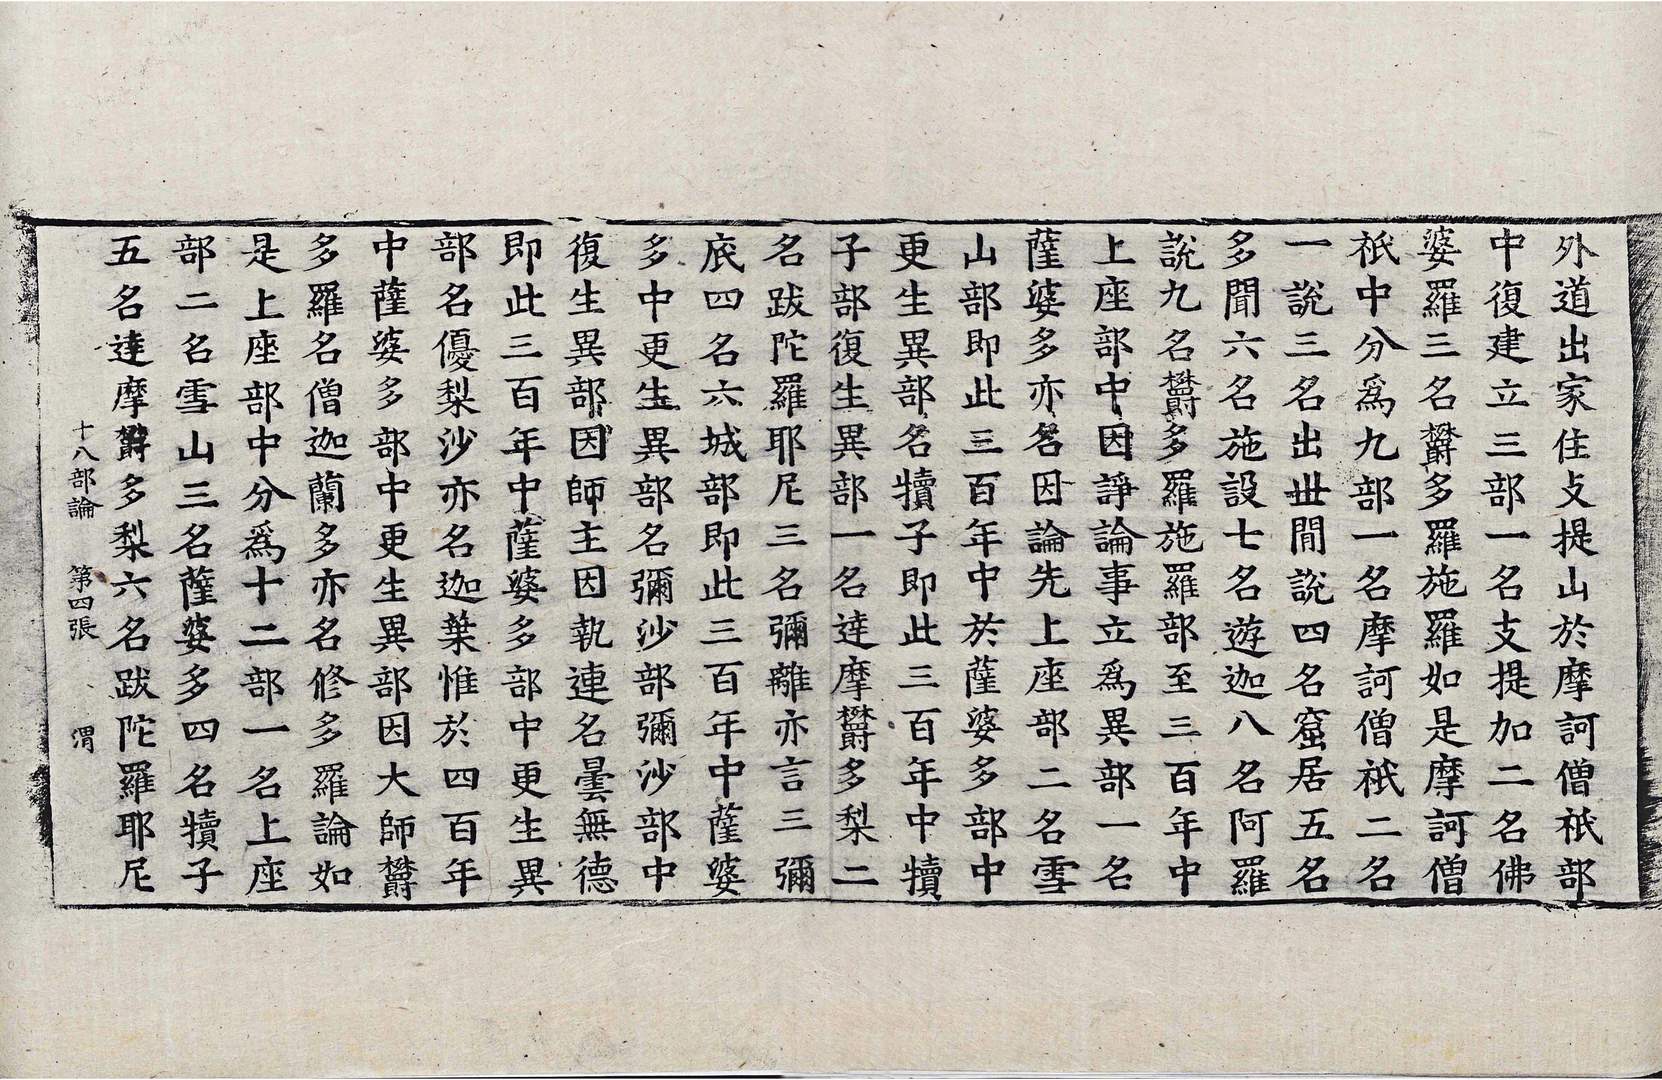 外道出家住支提山於摩訶僧祇部
中復建立三部一名支提加二名佛
婆羅三名欝多羅施羅如是摩訶僧
祇中分爲九部一名摩訶僧祇二名
一說三名出世閒說四名窟居五名
多聞六名施設七名遊迦八名阿羅
說九名欝多羅施羅部至三百年中
上座部中因諍論事立爲異部一名
薩婆多亦名因論先上座部二名雪
山部即此三百年中於薩婆多部中
更生異部名犢子即此三百年中犢
子部復生異部一名達摩欝多梨二
名跋陀羅耶尼三名彌離亦言三彌
底四名六城部即此三百年中薩婆
多中更生異部名彌沙部彌沙部中
復生異部因師主因執連名曇無德
即此三百年中薩婆多部中更生異
部名優梨沙亦名迦葉惟於四百年
中薩婆多部中更生異部因大師欝
多羅名僧迦蘭多亦名修多羅論如
是上座部中分爲十二部一名上座
部二名雪山三名薩婆多四名犢子
五名達摩欝多梨六名跋陀羅耶尼
十八部論 第四張 渭